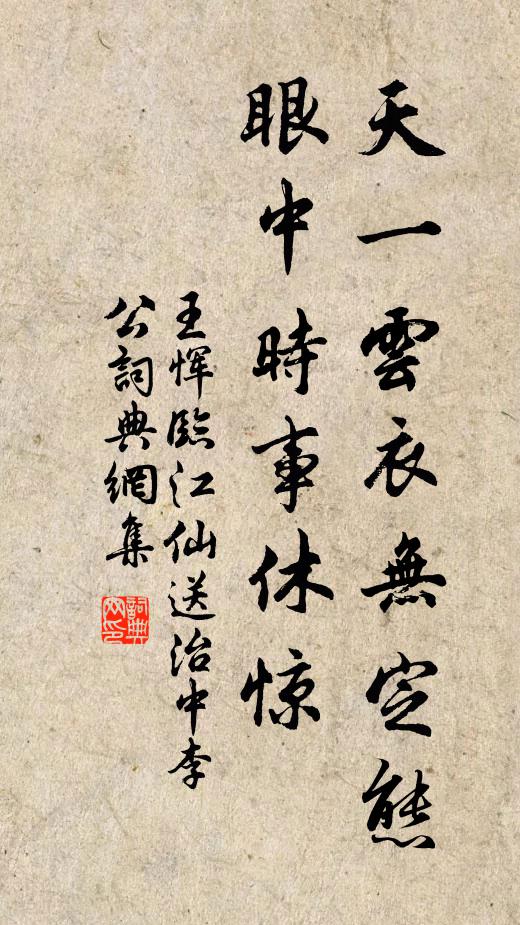 天一雲衣無定態
眼中時事休惊
王惲臨江仙送治中李
公詞典網集
詞典
网印